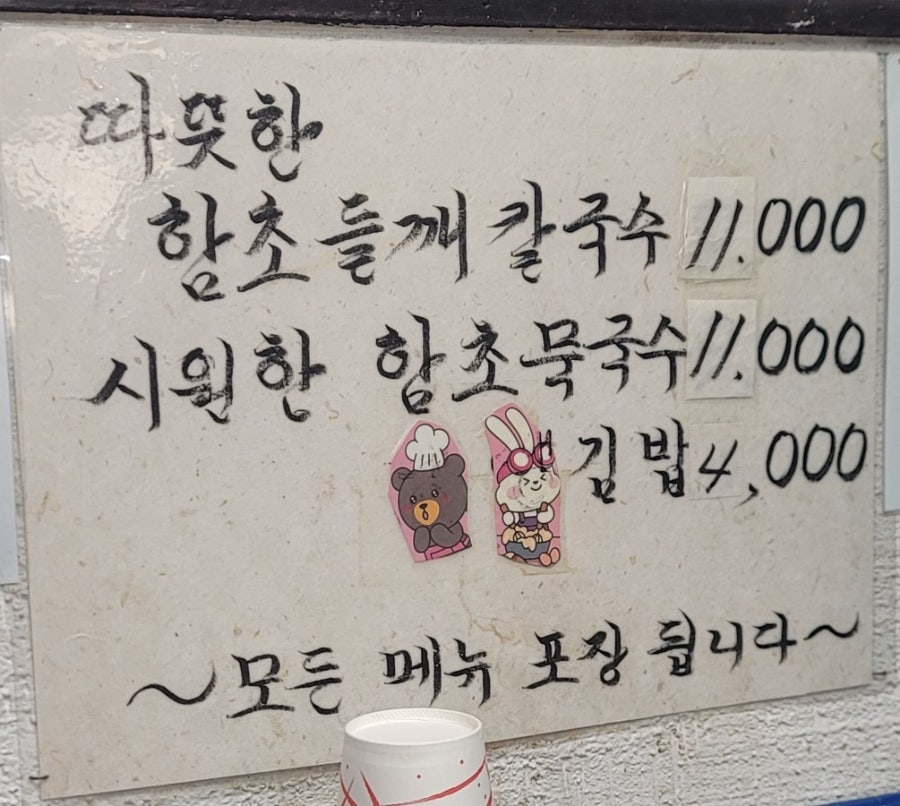 따뜻한
함초 들깨 칼국수 11.000
시원한 함초묵국수 11.000
김밥 4,000
~모든 메뉴 포장 됩니다~